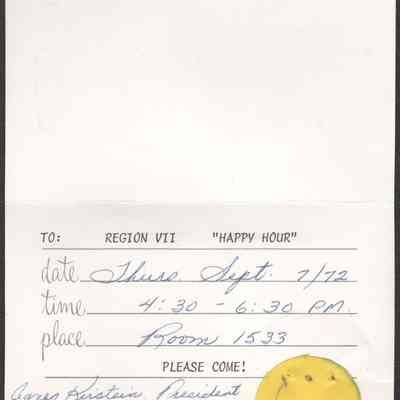 TO: REGION VII "HAPPY HOUR"
date Thurs. Sept. 7/72
time 4:30 - 6:30 PM.
place Room 1533
PLEASE COME!
Kerstein, President